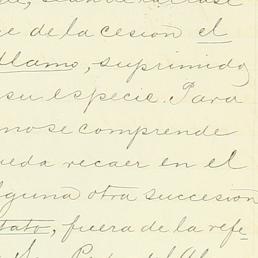 e de la cesion el
llamo, suprimido
su especie. Para
no se comprende
ueda recaer en el
lguna otra succesion
tato, fuera de la refe-